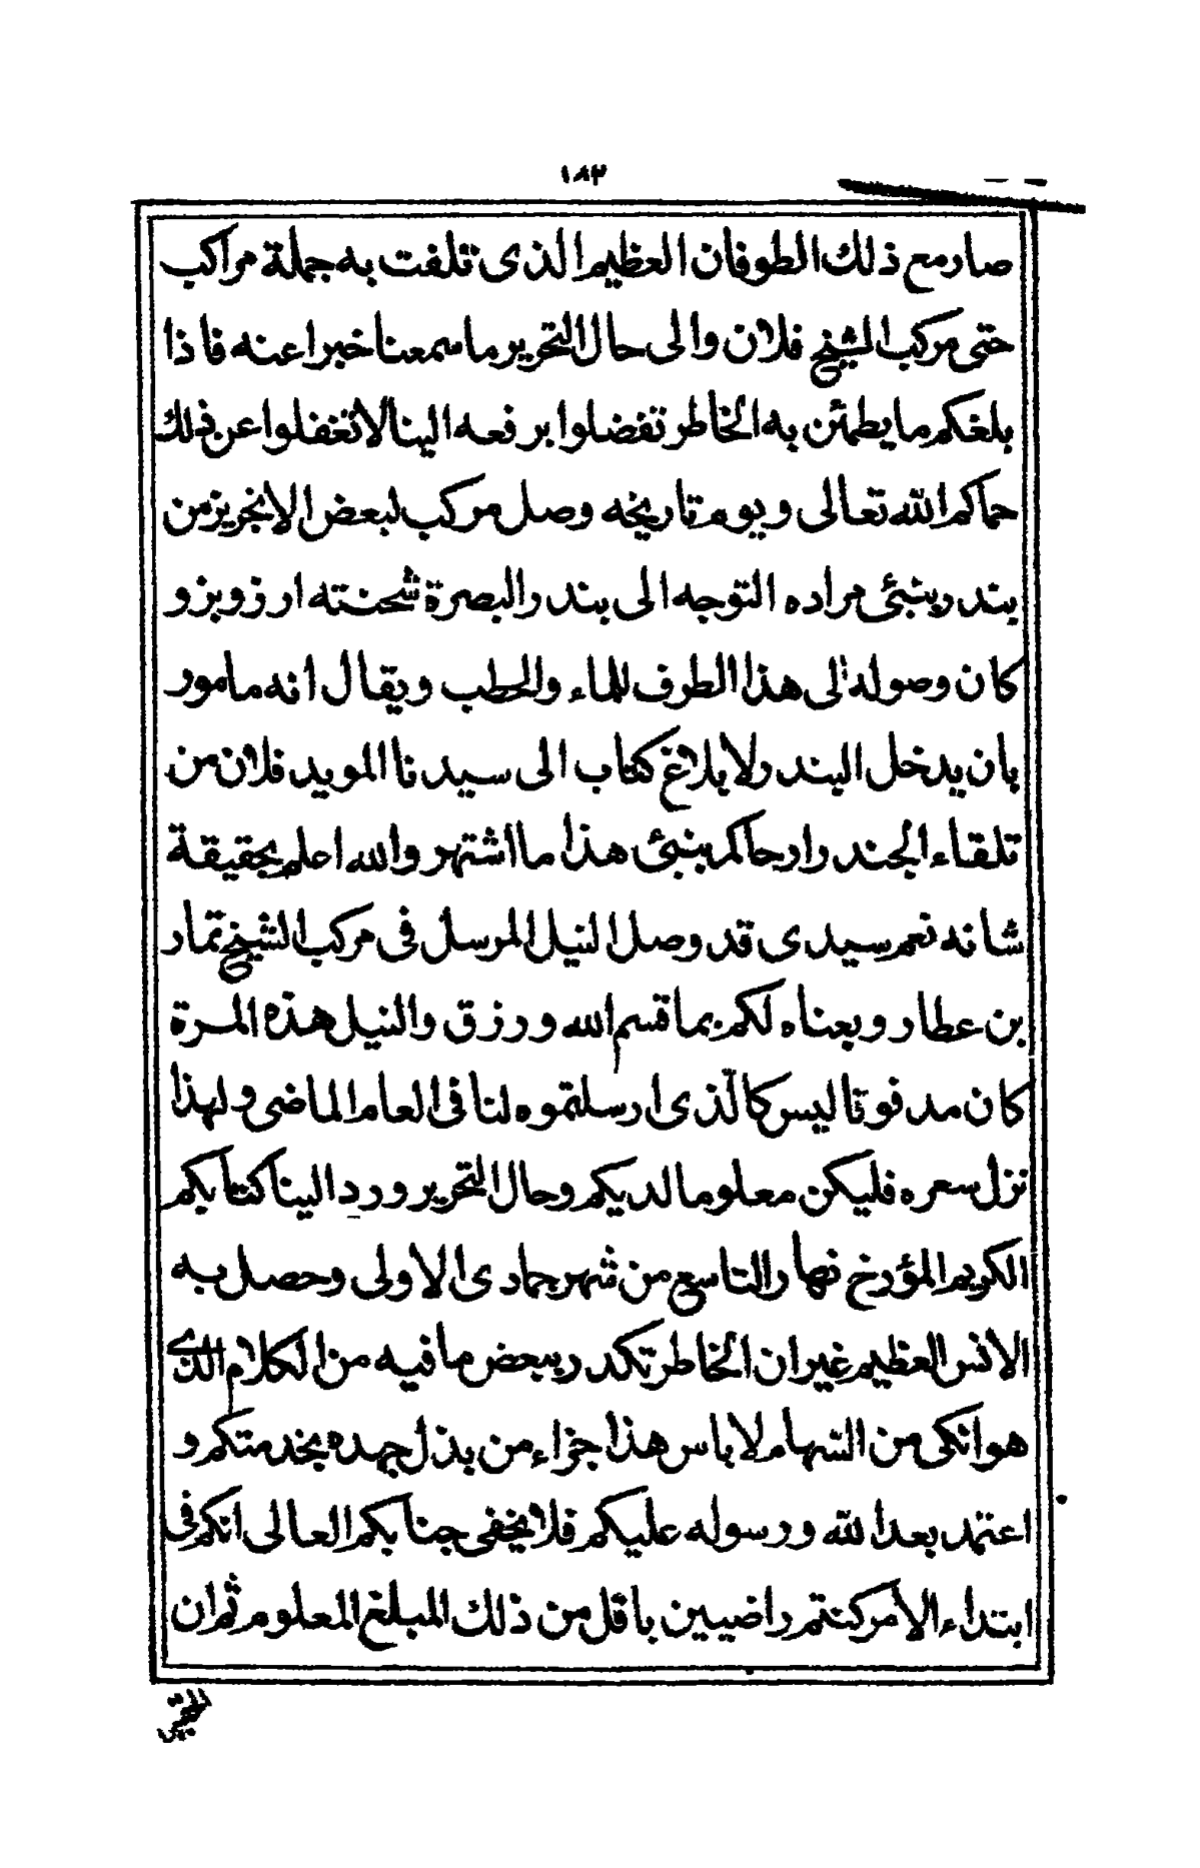 ١٨٢
صار مع ذلك الطوفان العظيم الذى تلفت به جملة مراكب
حتى مركب الشيخ فلان والى حال التحرير ما سمعنا خبرا عنه فاذا
بلغكم ما يطمئن به الخاطر تفضلوا برفعه الينا لا تغفلوا عن ذلك
حماكم الله تعالى ويوم تاريخه وصل مركب لبعض الانجريز من
بندر بنبئى مراده التوجه الى بندر البصرة شحنته ارز وبز و
كان وصوله الى هذا الطرف للماء والحطب ويقال انه مامور
بان يدخل البندر لا بلاغ كتاب الى سيدنا المويد فلان من
تلقاء الجندرار حاكم بنبئى هذا ما اشتهر والله اعلم بحقيقة
شانه نعم سيدى قد وصل النيل المرسل فى مركب الشيخ تمار
بن عطار وبعناه لكم بما قسم الله ورزق والنيل هذه المرة
كان مدفوتا ليس كالّذى ارسلتموه لنا فى العام الماضى ولهذا
نزل سعره فليكن معلوما لديكم وحال التحرير ورد الينا كتابكم
الكريم المؤرخ نهار التاسع من شهر جمادى الاولى وحصل به
الانس العظيم غير ان الخاطر تكدر ببعض ما فيه من الكلام الذى
هو انكى من السهام لا باس هذا جزاء من بذل جهده بخدمتكم و
اعتمد بعد الله ورسوله عليكم فلا يخفى جنابكم العالى انكم فى
ابتداء الامر كنتم راضيين باقل من ذلك المبلغ المعلوم ثم ان